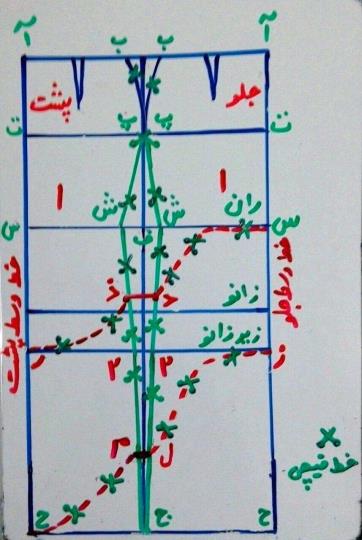 آ آ
ب ب
پشت جلو
ت پ پ ت
۱ ۱
ران
س ش ش س
ف
خط وسط پشت
خط وسط جلو
زانو
زیر زانو
ر ز
۲ ۳
م ل
خط قیچی
ح ج ح